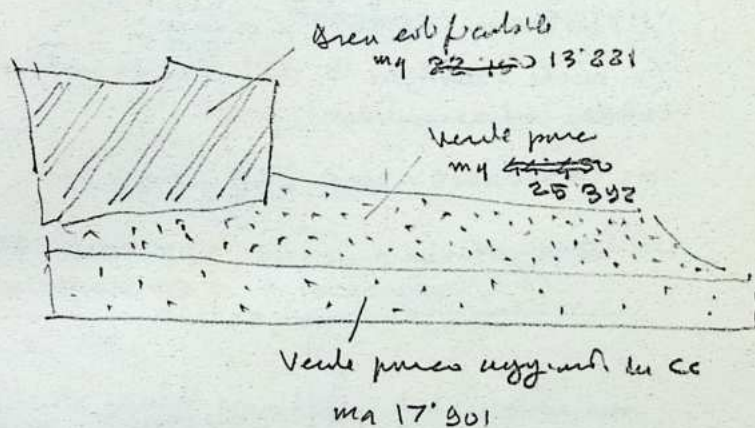 Area edificabile
mq 22.150 13'881
Verde parco
mq 44.450
25'392
Verde parco aggiunto da CC
mq 17'901